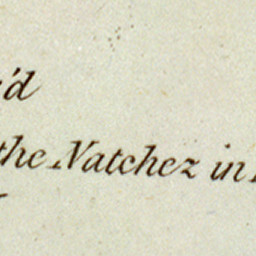 'd
the Natchez in